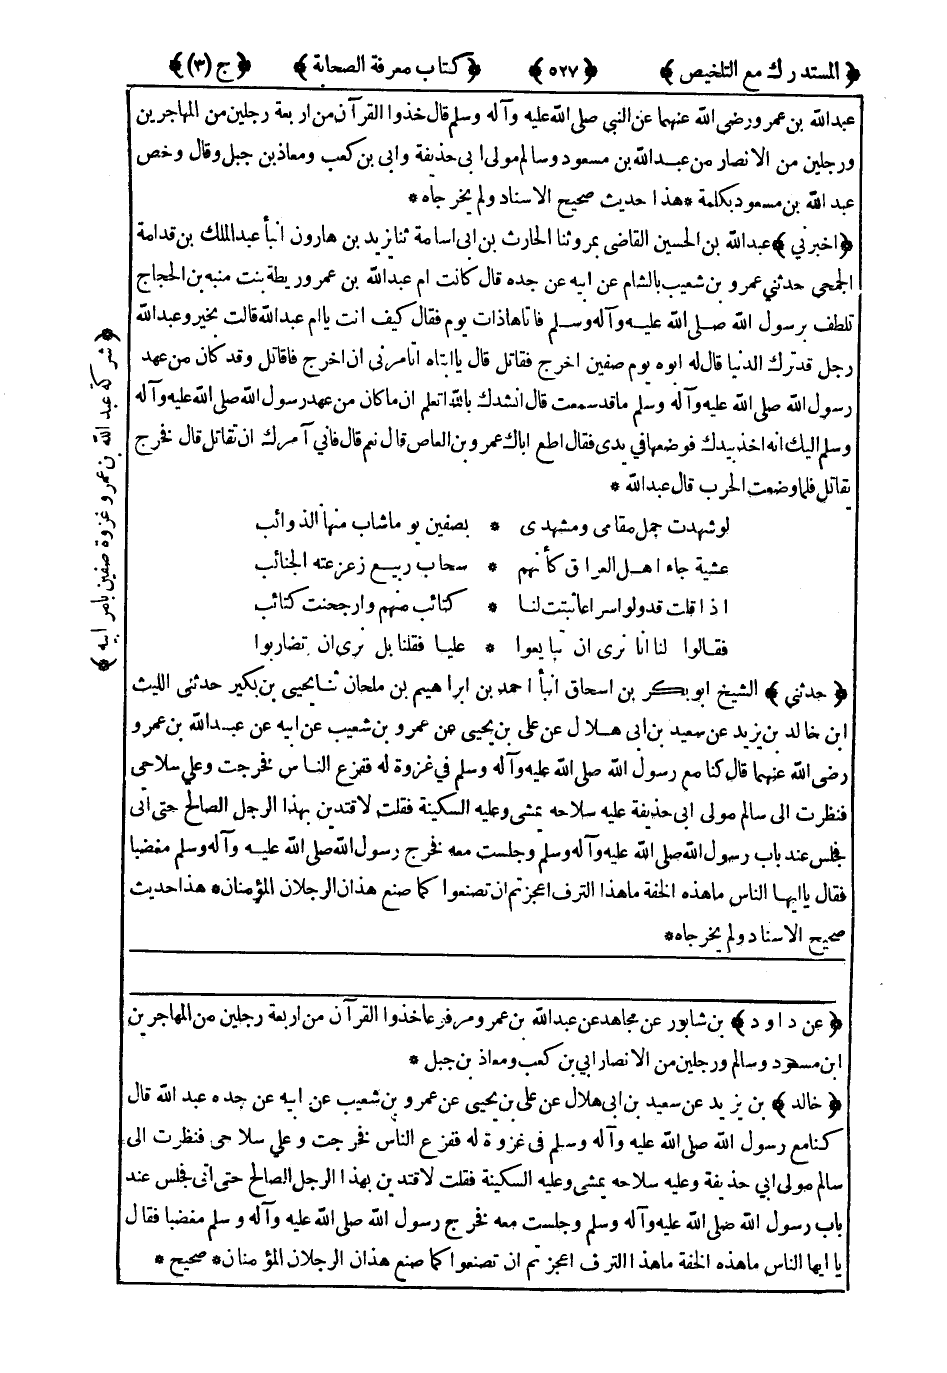 ﴿ المستدرك مع التلخيص ﴾ ﴿ ٥٢٧ ﴾ ﴿ كتاب معرفة الصحابة ﴾ ﴿ ج (٣) ﴾
عبدالله بن عمرو رضى الله عنهما عن النبي صلى الله عليه وآله وسلم قال خذوا القرآن من اربعة رجلين من المهاجرين
ورجلين من الانصار من عبدالله بن مسعود وسالم مولى ابى حذيفة وابى بن كعب ومعاذ بن جبل وقال وخص
عبد الله بن مسعود بكلمة * هذا حديث صحيح الاسناد ولم يخرجاه *
﴿ اخبرني ﴾ عبدالله بن الحسين القاضى بمرو ثنا الحارث بن ابى اسامة ثنا يزيد بن هارون انبأ عبدالملك بن قدامة
الجمحى حدثني عمرو بن شعيب بالشام عن ابيه عن جده قال كانت ام عبدالله بن عمرو ريطة بنت منبه بن الحجاج
تلطف برسول الله صلى الله عليه وآله وسلم فاتاها ذات يوم فقال كيف انت ياام عبدالله قالت بخير وعبدالله
رجل قد ترك الدنيا قال له ابوه يوم صفين اخرج فقاتل قال ياابتاه اتامرنى ان اخرج فاقاتل وقد كان من عهد
رسول الله صلى الله عليه وآله وسلم ما قد سمعت قال انشدك بالله اتعلم ان ما كان من عهد رسول الله صلى الله عليه وآله
وسلم اليك انه اخذ بيدك فوضعها في يدى فقال اطع اباك عمرو بن العاص قال نعم قال فانى آمرك ان تقاتل قال فخرج
يقاتل فلما وضعت الحرب قال عبدالله *
لو شهدت جمل مقامى ومشهدى * بصفين يو ما شاب منها الذوائب
عشية جاء اهل العراق كأنهم * سحاب ربيع زعزعته الجنائب
اذا قلت قد ولوا سراعا ثبتت لنا * كتائب منهم وارجحنت كتائب
فقالوا لنا انا نرى ان تبايعوا * عليا فقلنا بل نرى ان تضاربوا
﴿ حدثني ﴾ الشيخ ابوبكر بن اسحاق انبأ احمد بن ابراهيم بن ملحان ثنا يحيى بن بكير حدثنى الليث
ابن خالد بن يزيد عن سعيد بن ابى هلال عن على بن يحيى عن عمرو بن شعيب عن ابيه عن عبدالله بن عمرو
رضى الله عنهما قال كنا مع رسول الله صلى الله عليه وآله وسلم في غزوة له ففزع الناس فخرجت وعلي سلاحى
فنظرت الى سالم مولى ابى حذيفة عليه سلاحه يمشى وعليه السكينة فقلت لاقتدين بهذا الرجل الصالح حتى اتى
فجلس عند باب رسول الله صلى الله عليه وآله وسلم وجلست معه فخرج رسول الله صلى الله عليه وآله وسلم مغضبا
فقال ياايها الناس ماهذه الخفة ماهذا الترف اعجزتم ان تصنعوا كما صنع هذان الرجلان المؤمنان * هذا حديث
صحيح الاسناد ولم يخرجاه *
﴿ عن داود ﴾ بن شابور عن مجاهد عن عبدالله بن عمرو مرفوعا خذوا القرآن من اربعة رجلين من المهاجرين
ابن مسعود وسالم ورجلين من الانصار ابي بن كعب ومعاذ بن جبل *
﴿ خالد ﴾ بن يزيد عن سعيد بن ابى هلال عن على بن يحيى عن عمرو بن شعيب عن ابيه عن جده عبد الله قال
كنامع رسول الله صلى الله عليه وآله وسلم فى غزوة له ففزع الناس فخرجت وعلي سلاحى فنظرت الى
سالم مولى ابي حذيفة وعليه سلاحه يمشى وعليه السكينة فقلت لاقتدين بهذا الرجل الصالح حتى اتى فجلس عند
باب رسول الله صلى الله عليه وآله وسلم وجلست معه فخرج رسول الله صلى الله عليه وآله وسلم مغضبا فقال
يا ايها الناس ماهذه الخفة ماهذا الترف اعجزتم ان تصنعوا كما صنع هذان الرجلان المؤمنان * صحيح *
﴿ شركة عبدالله بن عمرو غزوة صفين بامر ابيه ﴾